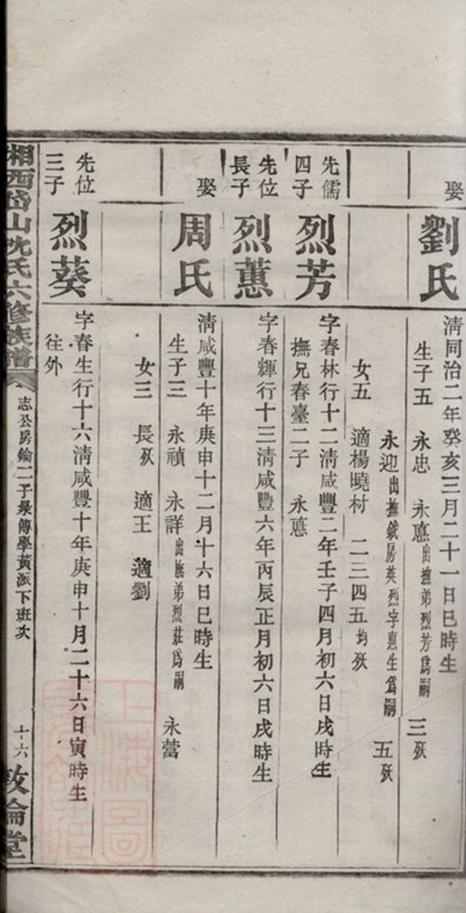 娶
劉氏
清同治二年癸亥三月二十一日巳時生
生子五 永忠 永慐出撫弟烈芳為嗣 三殀
永迎出撫鐵房英烈字惠生為嗣 五殀
女五 適楊曉村 二三四五均殀
先儒四子
烈芳
字春林行十二清咸豐二年壬子四月初六日戌時生
撫兄春臺二子 永慐
先位長子
烈蕙
字春輝行十三清咸豐六年丙辰正月初六日戌時生
娶
周氏
清咸豐十年庚申十二月十六日巳時生
生子三 永禎 永詳出撫弟烈莊為嗣 永蕾
女三 長殀 適王 適劉
先位三子
烈葵
字春生行十六清咸豐十年庚申十月二十六日寅時生
往外
湘西 山沈氏六修族譜
志公房 二子景傳學黃派下班次
十六
敦倫堂